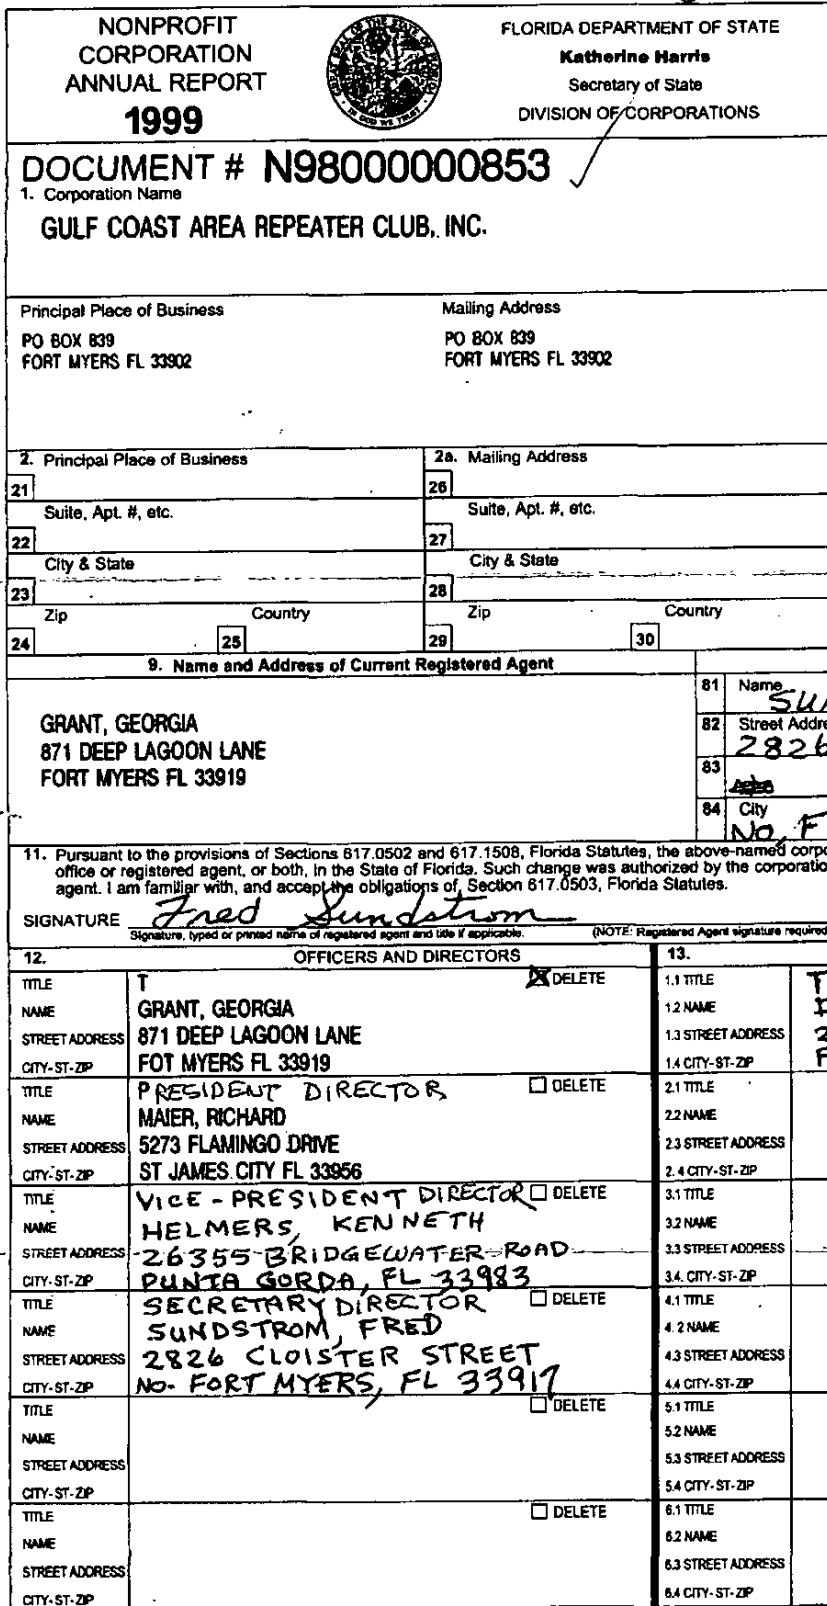 NONPROFIT
CORPORATION
ANNUAL REPORT
1999
FLORIDA DEPARTMENT OF STATE
Katherine Harris
Secretary of State
DIVISION OF CORPORATIONS
DOCUMENT # N98000000853
1. Corporation Name
GULF COAST AREA REPEATER CLUB, INC.
Principal Place of Business
PO BOX 839
FORT MYERS FL 33902
Mailing Address
PO BOX 839
FORT MYERS FL 33902
2. Principal Place of Business
21
Suite, Apt. #, etc.
22
City & State
23
Zip
24
Country
25
2a. Mailing Address
26
Suite, Apt. #, etc.
27
City & State
28
Zip
29
Country
30
9. Name and Address of Current Registered Agent
GRANT, GEORGIA
871 DEEP LAGOON LANE
FORT MYERS FL 33919
81 Name
82 Street Addre
2826
83
84 City
No, F
11. Pursuant to the provisions of Sections 617.0502 and 617.1508, Florida Statutes, the above-named corpo
office or registered agent, or both, in the State of Florida. Such change was authorized by the corporatio
agent. I am familiar with, and accept the obligations of, Section 617.0503, Florida Statutes.
SIGNATURE Fred Sundstrom
Signature, typed or printed name of registered agent and title if applicable. (NOTE: Registered Agent signature required
12. OFFICERS AND DIRECTORS 13.
TITLE T DELETE
NAME GRANT, GEORGIA
STREET ADDRESS 871 DEEP LAGOON LANE
CITY-ST-ZIP FOT MYERS FL 33919
TITLE PRESIDENT DIRECTOR DELETE
NAME MAIER, RICHARD
STREET ADDRESS 5273 FLAMINGO DRIVE
CITY-ST-ZIP ST JAMES CITY FL 33956
TITLE VICE-PRESIDENT DIRECTOR DELETE
NAME HELMERS, KENNETH
STREET ADDRESS 26355 BRIDGEWATER ROAD
CITY-ST-ZIP PUNTA GORDA, FL 33983
TITLE SECRETARY DIRECTOR DELETE
NAME SUNDSTROM, FRED
STREET ADDRESS 2826 CLOISTER STREET
CITY-ST-ZIP NO. FORT MYERS, FL 33917
TITLE DELETE
NAME
STREET ADDRESS
CITY-ST-ZIP
TITLE DELETE
NAME
STREET ADDRESS
CITY-ST-ZIP
1.1 TITLE T
1.2 NAME
1.3 STREET ADDRESS 2
1.4 CITY-ST-ZIP F
2.1 TITLE
2.2 NAME
2.3 STREET ADDRESS
2.4 CITY-ST-ZIP
3.1 TITLE
3.2 NAME
3.3 STREET ADDRESS
3.4. CITY-ST-ZIP
4.1 TITLE
4.2 NAME
4.3 STREET ADDRESS
4.4 CITY-ST-ZIP
5.1 TITLE
5.2 NAME
5.3 STREET ADDRESS
5.4 CITY-ST-ZIP
6.1 TITLE
6.2 NAME
6.3 STREET ADDRESS
6.4 CITY-ST-ZIP